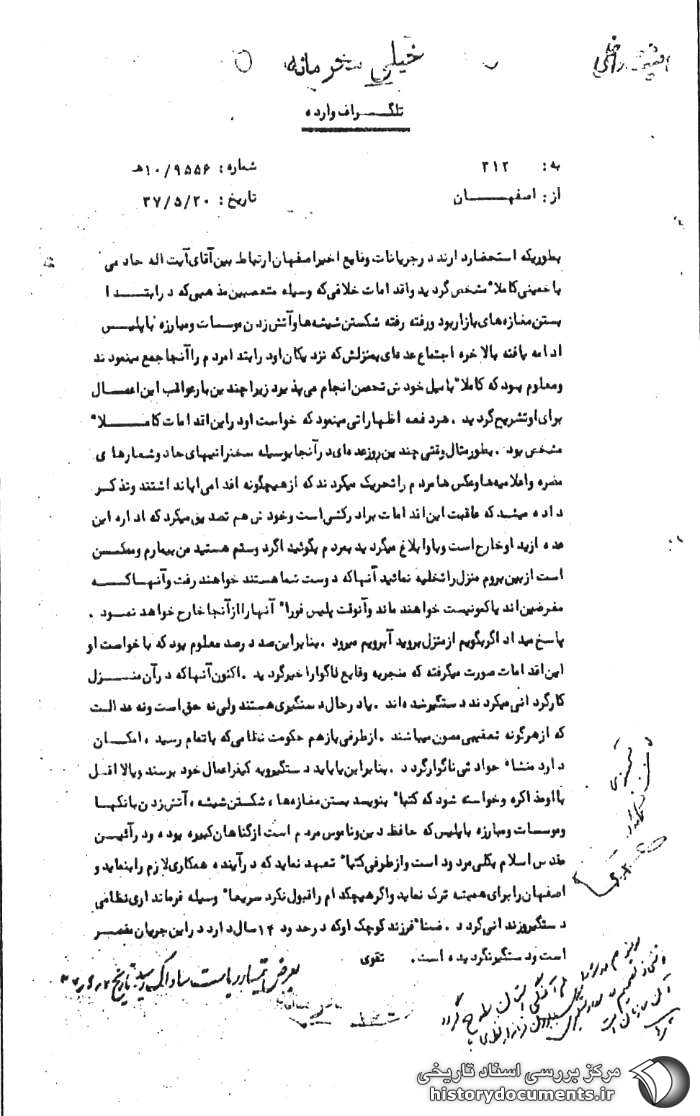 خیلی محرمانه
تلگراف وارده
به: ۳۱۲
شماره: ۱۰/۹۵۵۶ هـ
از: اصفهان
تاریخ: ۳۷/۵/۲۰
بطوریکه استحضار دارند در جریانات وقایع اخیر اصفهان ارتباط بین آقای آیت اله خادمی
با خمینی کاملا" مشخص گردید و اقدامات خلافی که وسیله متعصبین مذهبی که در ابتدا
بستن مغازه های بازار بود و رفته رفته شکستن شیشه ها و آتش زدن موسسات و مبارزه با پلیس
ادامه یافته بالاخره اجتماع عده ای بمنزلش که نزدیکان او در ابتدا مردم را آنجا جمع مینمودند
و معلوم بود که کاملا" با میل خودش تحصن انجام می پذیرد زیرا چندین بار عواقب این اعمال
برای او تشریح گردید . هر دفعه اظهاراتی مینمود که خواست او در این اقدامات کاملا"
مشخص بود . بطور مثال وقتی چندین روز عده ای در آنجا بوسیله سخنرانیهای حاد و شعارهای
مضره و اعلامیه ها و عکس ها مردم را تحریک میکردند که از هیچگونه اقدامی ابا نداشتند و تذکر
داده میشد که عاقبت این اقدامات برادرکشی است و خودش هم تصدیق میکرد که اداره این
عده از ید او خارج است و با و ابلاغ میگردید بمردم بگوئید اگر دوستم هستید من بیمارم و ممکن
است از بین بروم منزل را تخلیه نمائید آنها که دوست شما هستند خواهند رفت و آنها که
مغرضین اند یا کمونیست خواهند ماند و آنوقت پلیس فورا" آنها را از آنجا خارج خواهد نمود .
پاسخ میداد اگر بگویم از منزل بروید آبرویم میرود . بنابراین صد در صد معلوم بود که با خواست او
این اقدامات صورت میگرفته که منجر به وقایع ناگوار اخیر گردید . اکنون آنها که در آن منزل
کارگردانی میکردند دستگیر شده اند . یا در حال دستگیری هستند ولی نه حق است و نه عدالت
که از هرگونه تعقیبی مصون میباشند . از طرفی باز هم حکومت نظامی که باتمام رسید ، امکان
دارد منشاء حوادثی ناگوار گردد . بنابراین یا باید دستگیر و به کیفر اعمال خود برسند و یا لااقل
با او مذاکره و خواسته شود که کتبا" بنویسد بستن مغازه ها ، شکستن شیشه ، آتش زدن بانکها
و موسسات و مبارزه با پلیس که حافظ دین و ناموس مردم است از گناهان کبیره بوده و در آئین
مقدس اسلام بکلی مردود است و از طرفی کتبا" تعهد نماید که در آینده همکاری لازم را بنماید و
اصفهان را برای همیشه ترک نماید و اگر هیچکدام را قبول نکرد سریعا" وسیله فرمانداری نظامی
دستگیر و زندانی گردد . ضمنا" فرزند کوچک او که در حدود ۱۴ سال دارد در این جریان مقصر
است و دستگیر نگردیده است . تقوی
بعرض تیمسار ریاست ساواک رسید
مرکز بررسی اسناد تاریخی
historydocuments.ir